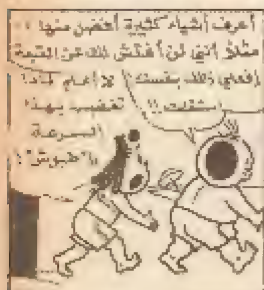 أعرف أشياء كثيرة أحسن منها ..
مثلاً أنني لن أفتش لك عن القبعة
إفعلي ذلك بنفسك !! لا أعلم لماذا
تغضب بهذه
السرعة
يا "طبوش" !